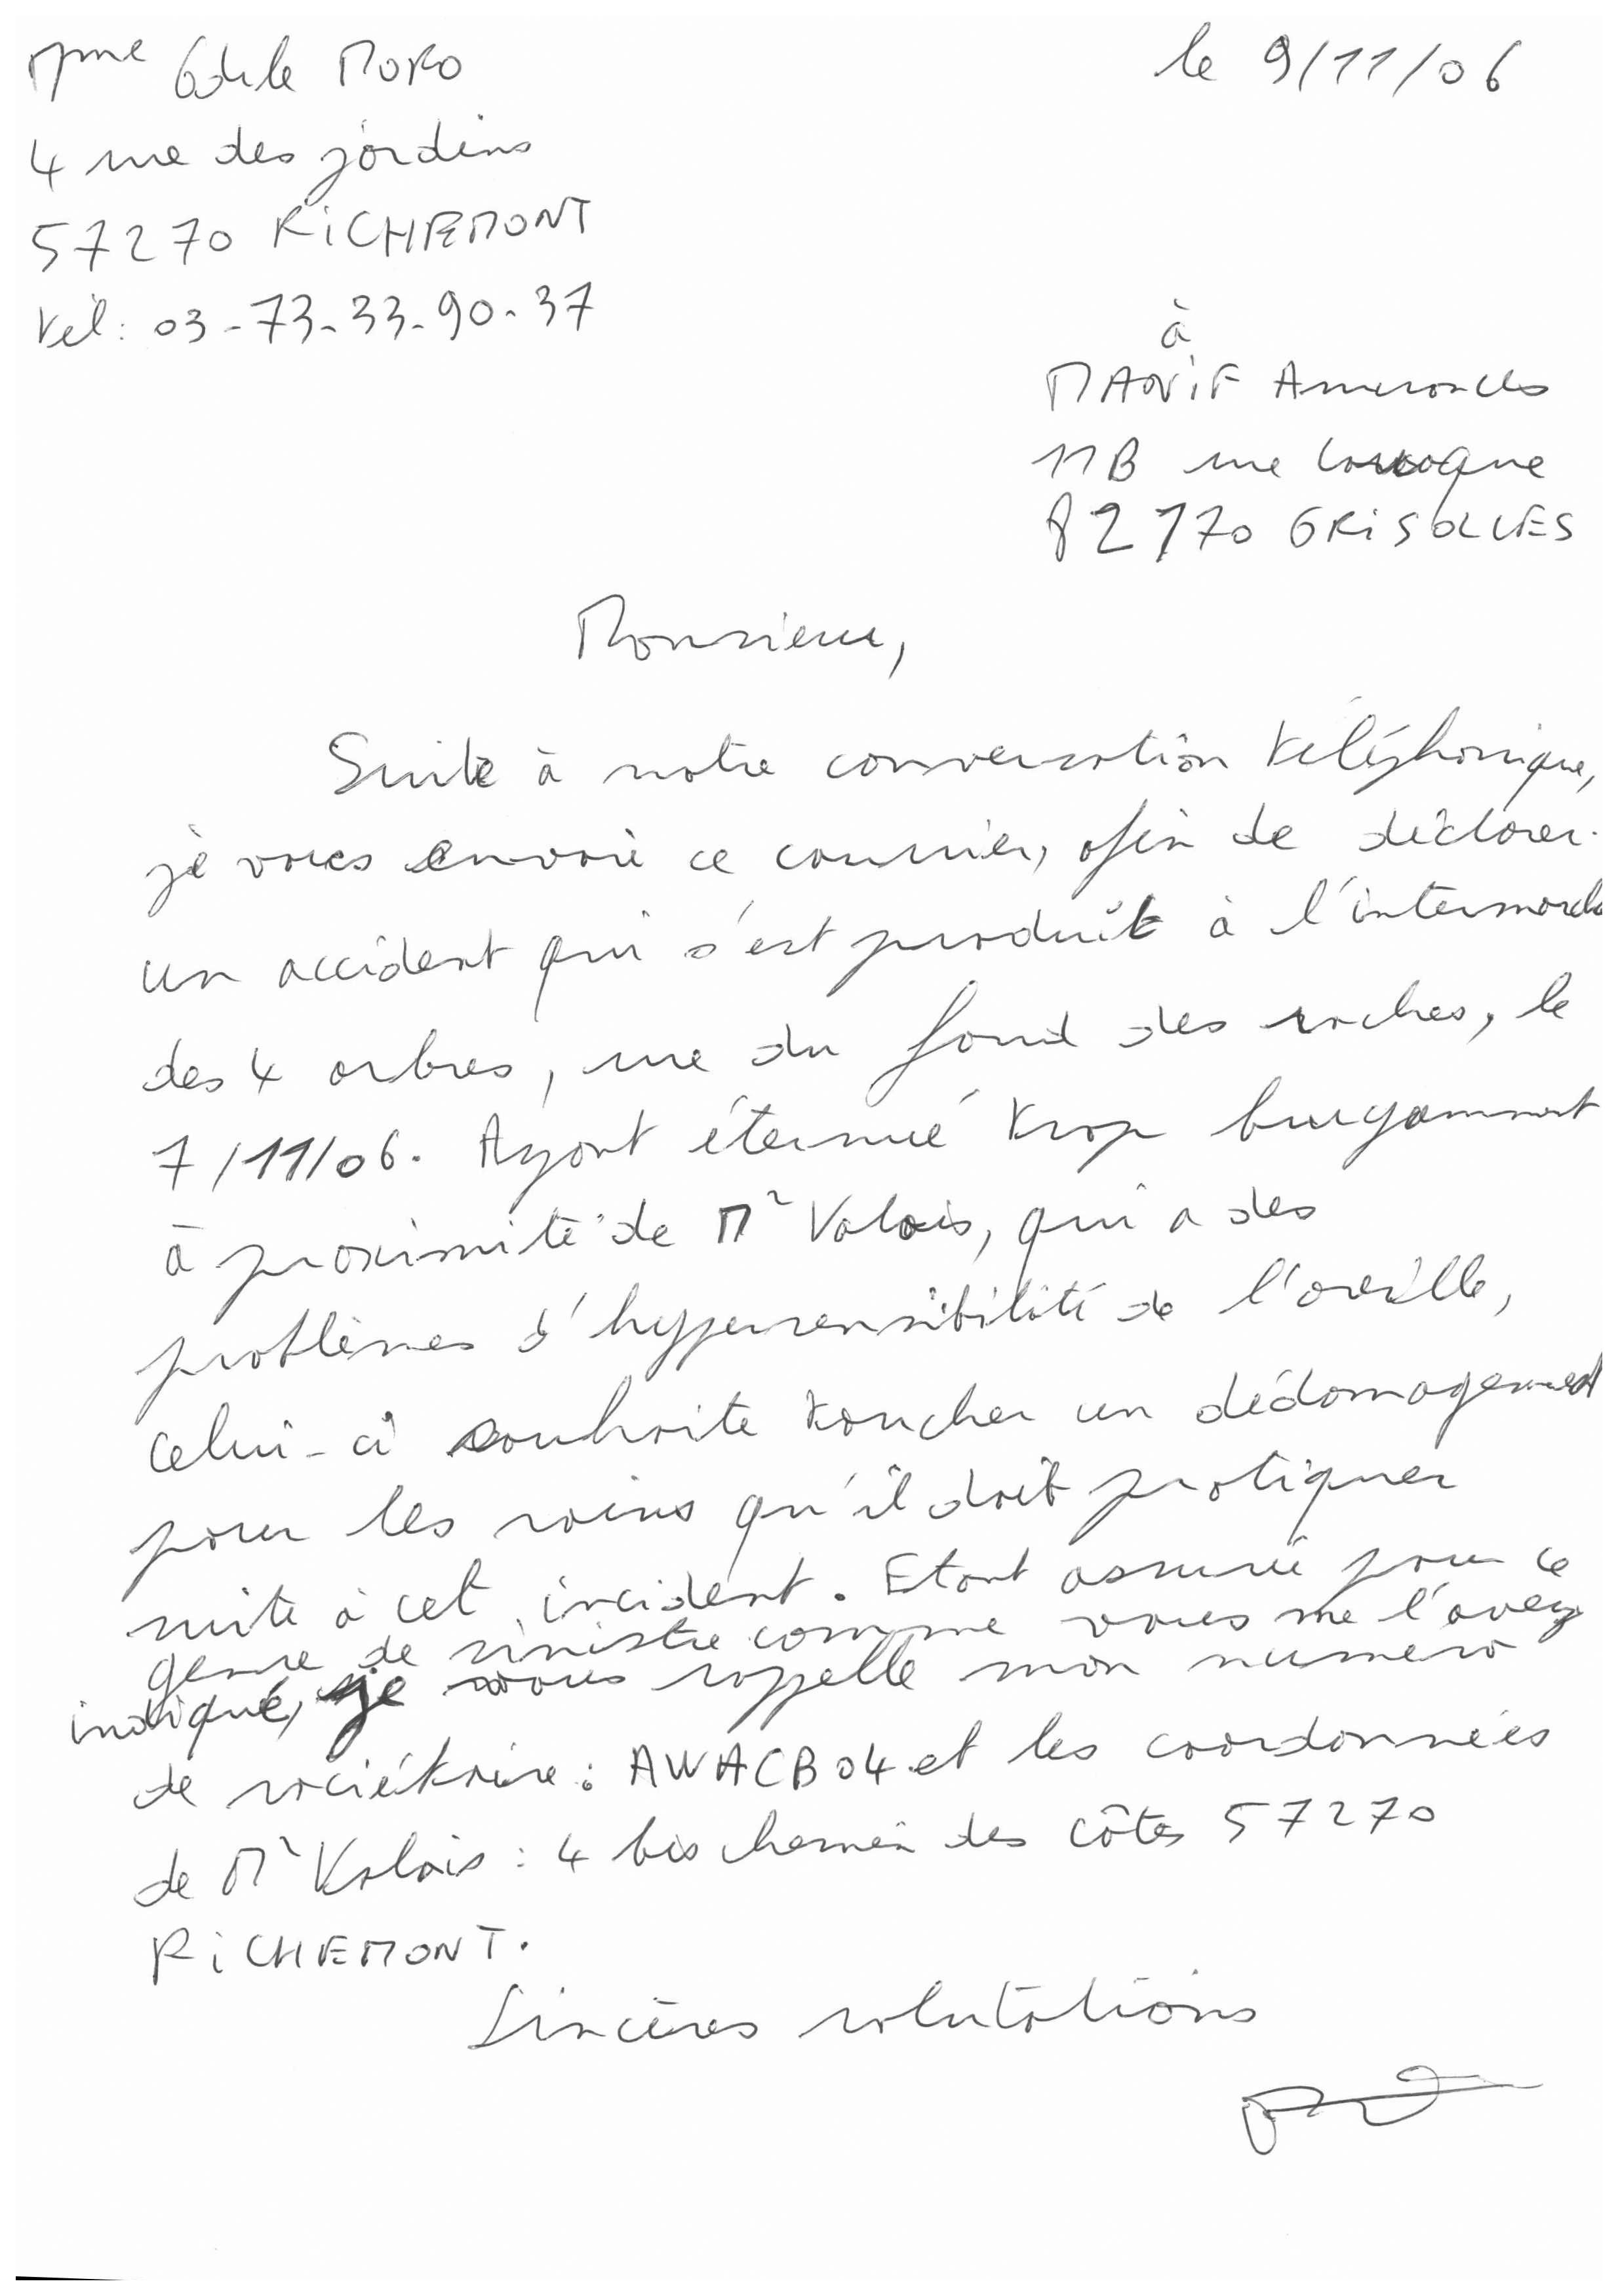 Mme Odile MORO
le 9/11/06
4 rue des jardins
57270 RICHEMONT
tél : 03-73-33-90-37
à
MANIF Assurances
11B rue
82170 GRISOLLES
Monsieur,
Suite à notre conversation téléphonique,
je vous envoie ce courrier, afin de déclarer
un accident qui s'est produit à l'intermarché
des 4 arbres, rue du fond des roches, le
7/11/06. Ayant éternué trop bruyamment
à proximité de Mr Valois, qui a des
problèmes d'hypersensibilité de l'oreille,
celui-ci souhaite toucher un dédomagement
pour les soins qu'il doit pratiquer
suite à cet incident. Etant assurée pour ce
genre de sinistre comme vous me l'avez
indiqué, je vous rappelle mon numéro
de sociétaire : AWACB04 et les coordonnées
de Mr Valois : 4 bis chemin des côtes 57270
RICHEMONT.
Sincères salutations